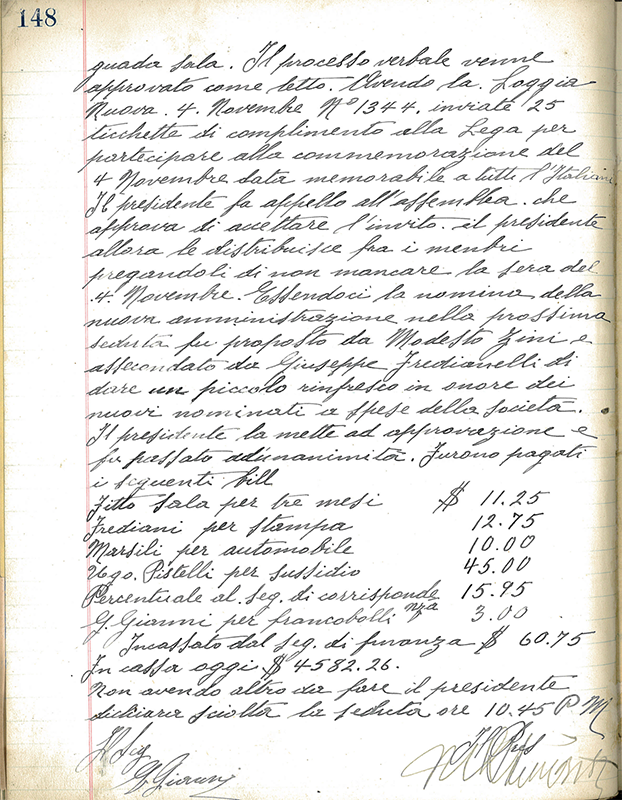 148
guada sala. Il processo verbale venne
approvato come letto. Avendo la Loggia
Nuova. 4. Novembre Nº 1344. inviate 25
ticchette di complimento alla Lega per
partecipare alla commemorazione del
4 Novembre data memorabile a tutti l'Italiani.
Il presidente fa appello all'assemblea. che
approva di accettare l'invito. il presidente
allora le distribuisce fra i menbri
pregandoli di non mancare la sera del
.4. Novembre. Essendoci la nomina della
nuova amministrazione nella prossima
seduta fu proposto da Modesto Zini e
assecondato da Giuseppe Fredianelli di
dare un piccolo rinfresco in onore dei
nuovi nominati a spese della società.
Il presidente la mette ad approvazione e
fu passato adunanimità. Furono pagati
i seguenti bill
Fitto sala per tre mesi $ 11.25
Frediani per stampa 12.75
Marsili per automobile 10.00
Ugo. Pistelli per sussidio 45.00
Percentuale al seg. di corrisponde 15.95
nza
G. Gianni per francobolli 3.00
Incassato dal seg. di finanza $ 60.75
In cassa oggi $ 4582.26.
Non avendo altro da fare il presidente
dichiara sciolta la seduta ore 10.45 P M
Il Seg Il Pres
G. Gianni